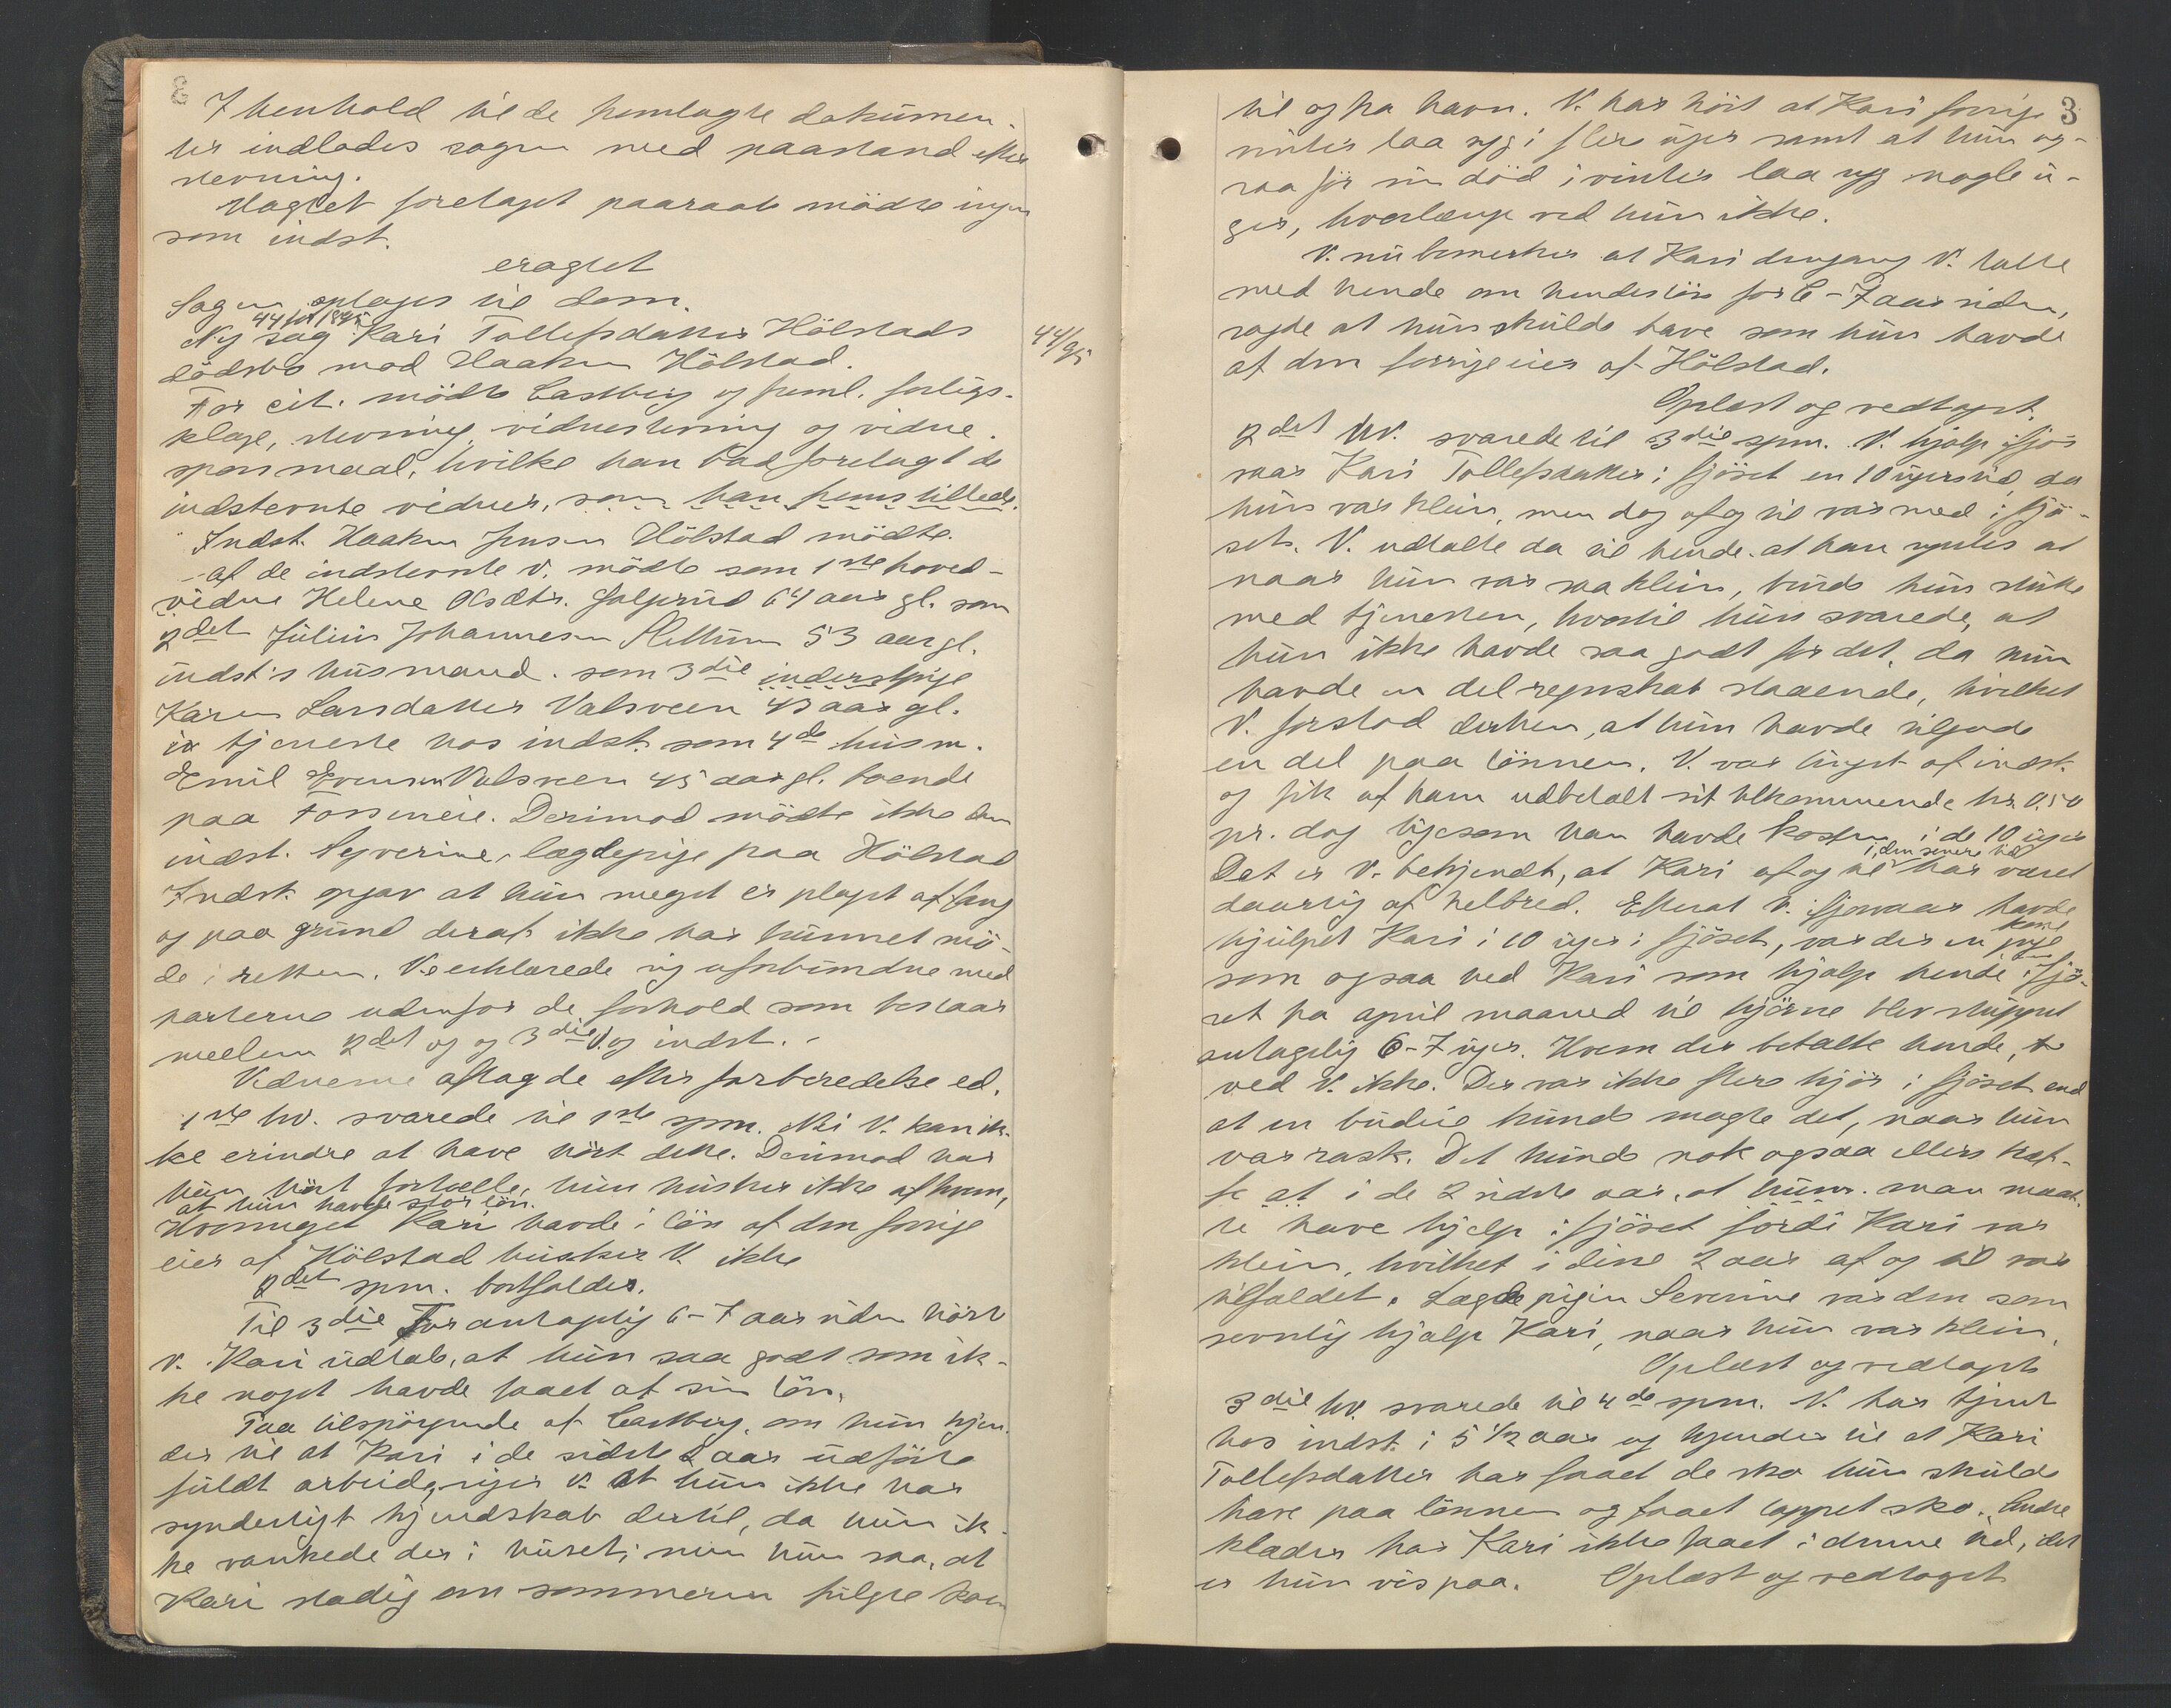 I henhold til de fremlagte dokumen-
ter indlodes sagen med paastand efter
stevning.
Uagtet foretaget paaraab mødte ingen
som indst.
eragtet
Sagen optages til dom.
44/95
Ny sag Kari Tollefsdatter Hölstads
dödsbo mod Haaken Hölstad.
For cit. mödte Castberg og freml. forligs-
klage, stevning, vidnestevning og vidne-
spørsmaal, hvilke han bad forelagt de
indstevnte vidner, som han fremstillede.
Indst. Haaken Jensen Hölstad mödte.
af de indstevnte V. mödte som 1ste hoved-
vidne Helene Olsdtr. 64 aar gl. som
2det Julius Johannesen Slettum 53 aar gl.
indst's husmand. som 3die inderstpige
Karen Larsdatter Valsveen 43 aar gl.
i tjeneste hos indst. som 4de husm.
Emil Evensen Valsveen 45 aar gl. boende
paa Fosseneie. Derimod mödte ikke den
indst. Syverine, lægdepige paa Hölstad
Indst. opgav at hun meget er plaget af
og paa grund deraf ikke har kunnet mö-
de i retten. V. erklærede sig uforbundne med
parterne udenfor de forhold som bestaar
mellem 2det og og 3die V. og indst. -
Vidnerne aflagde efter forberedelse ed.
1ste hv. svarede til 1ste spm. Nei V. kan ik-
ke erindre at have hört dette. Derimod har
hun hört fortælle, hun husker ikke af hvem,
at hun havde stor lön.
Hvormeget Kari havde i lön af den forrige
eier af Hölstad husker V. ikke
2det spm. bortfalder.
Til 3die For antagelig 6-7 aar siden hörte
V. Kari udtale, at hun saa godt som ik-
ke noget havde faaet af sin lön.
Paa tilspörgende af Castberg, om hun kjen-
der til at Kari i de sidste 2 aar udförte
fuldt arbeide, siger V. at hun ikke har
synderligt kjendskab dertil, da hun ik-
ke vankede der i huset; men hun saa, at
Kari stadig om sommeren fulgte kom
3
til og fra havn. V. har hört at Kari forrige
vinter laa syg i flere uger samt at hun og-
saa för sin död i vinter laa syg nogle u-
ger, hvorlænge ved hun ikke.
V. nu bemerker at Kari dengang V. talte
med hende om hendes lön for 6-7 aar siden,
sagde at hun skulde have som hun havde
af den forrige eier af Hölstad.
Oplæst og vedtaget.
2det hv. svarede til 3die spm. V. hjalp ifjor
vaar Kari Tollefsdatter i fjöset en 10 ugers tid, da
hun var klein, men dog af og til var med i fjö-
set. V. udtalte da til hende at han syntes at
naar hun var saa klein, burde hun slutte
med tjenesten, hvortil hun svarede, at
hun ikke havde saa godt for det, da hun
havde en del regnskab staaende, hvilket
V. forstod derhen, at hun havde tilgode
en del paa lönnen. V. var leiget af indst.
og fik af ham udbetalt sit tilkommende kr. 0,50
pr. dag ligesom han havde kosten i de 10 uger
Det er V. bekjendt, at Kari af og til i den senere tid har været
daarlig af helbred. Efterat V. ifjorvaar havde
hjulpet Kari i 10 uger i fjöset, var der en pige
Kari
som ogsaa hed Kari som hjalp hende i fjö-
set fra april maaned til kjörne blev sluppet
antagelig 6-7 uger. Hvem der betalte hende,
ved V. ikke. Der var ikke flere kjör i fjöset end
at en budeie kunde magte det, naar hun
var rask. Det hændte nok ogsaa ellers
at i de 2 sidste aar, at man maat-
te have hjelp i fjöset fordi Kari var
klein, hvilket i disse 2 aar af og til var
tilfældet. Lægdepigen Severine var den som
jevnlig hjalp Kari, naar hun var klein.
Oplæst og vedtaget
3die hv. svarede til 4de spm. V. har tjent
hos indst. i 5 1/2 aar og kjender til at Kari
Tollefsdatter har faaet de sko hun skulde
have paa lönnen og faaet lappet sko. Andre
klæder har Kari ikke faaet i denne tid, det
er hun vis paa. Oplæst og vedtaget